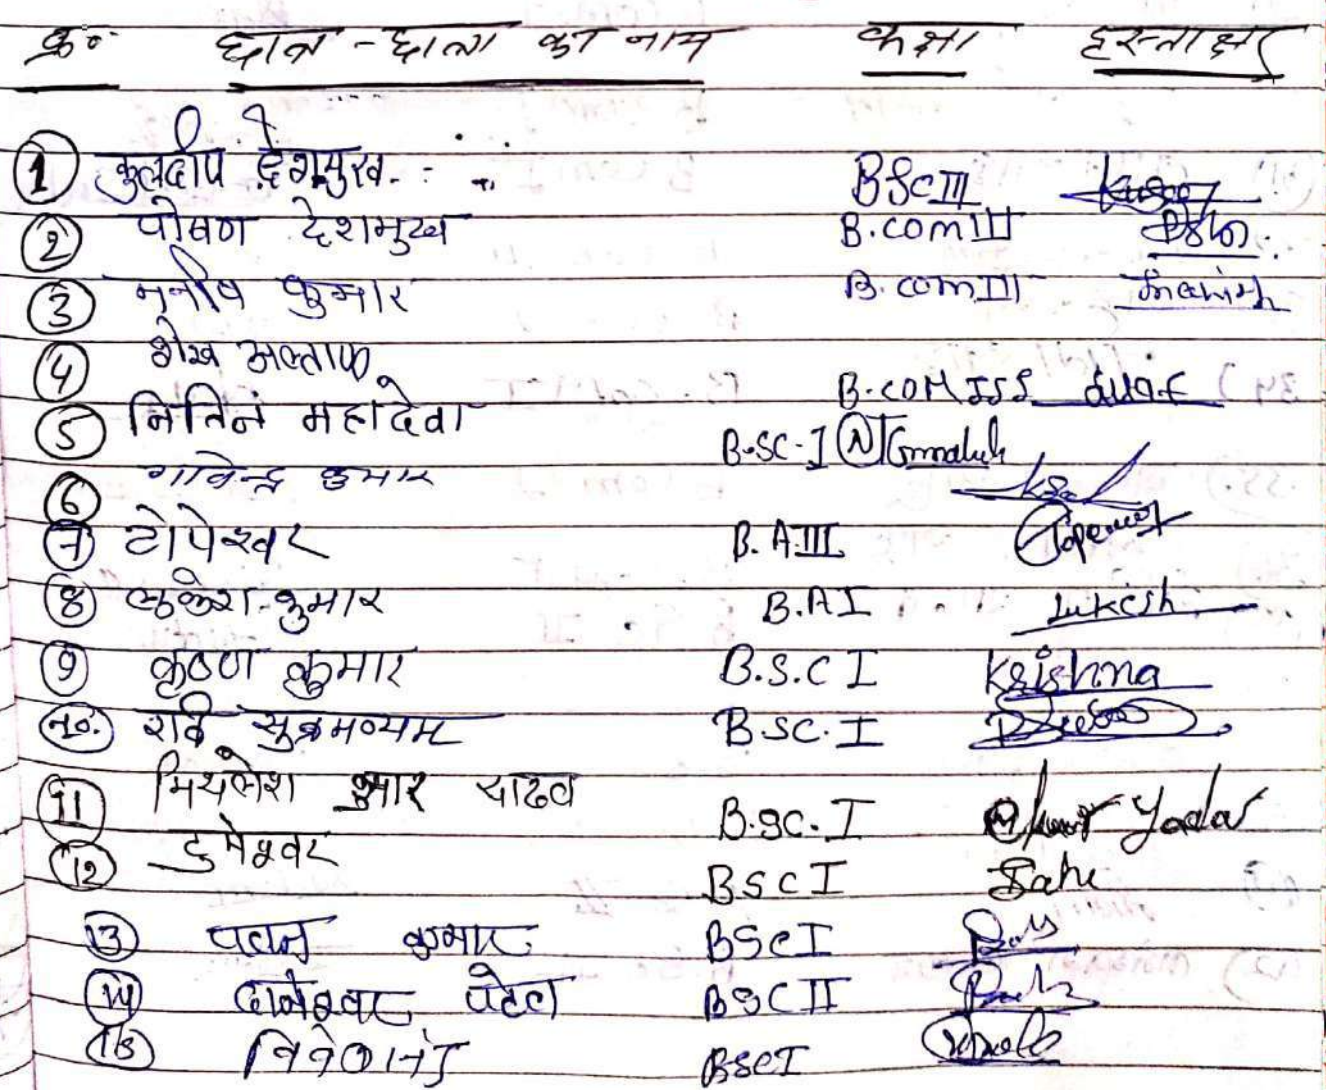 क्र० छात्र - छात्रा का नाम कक्षा हस्ताक्षर
1 कुलदीप देशमुख BSc III
2 पोषण देशमुख B.com III
3 मनीष कुमार B.com III Manish
4 शेख अल्ताफ B.COM III
5 नितिन महादेवा B.SC-I
6 गोविन्द्र कुमार
7 टोपेश्वर B.A III Topeswar
8 लुकेश कुमार B.A I Lukesh
9 कृष्ण कुमार B.S.C I Krishna
10. रवि सुब्रमण्यम B.SC. I
11 मिथलेश कुमार यादव B.SC. I Kumar Yadav
12 डुमेश्वर BSC I Sahu
13 पवन कुमार BSC I
14 दानेश्वर पटेल BSC II
15 BSC I